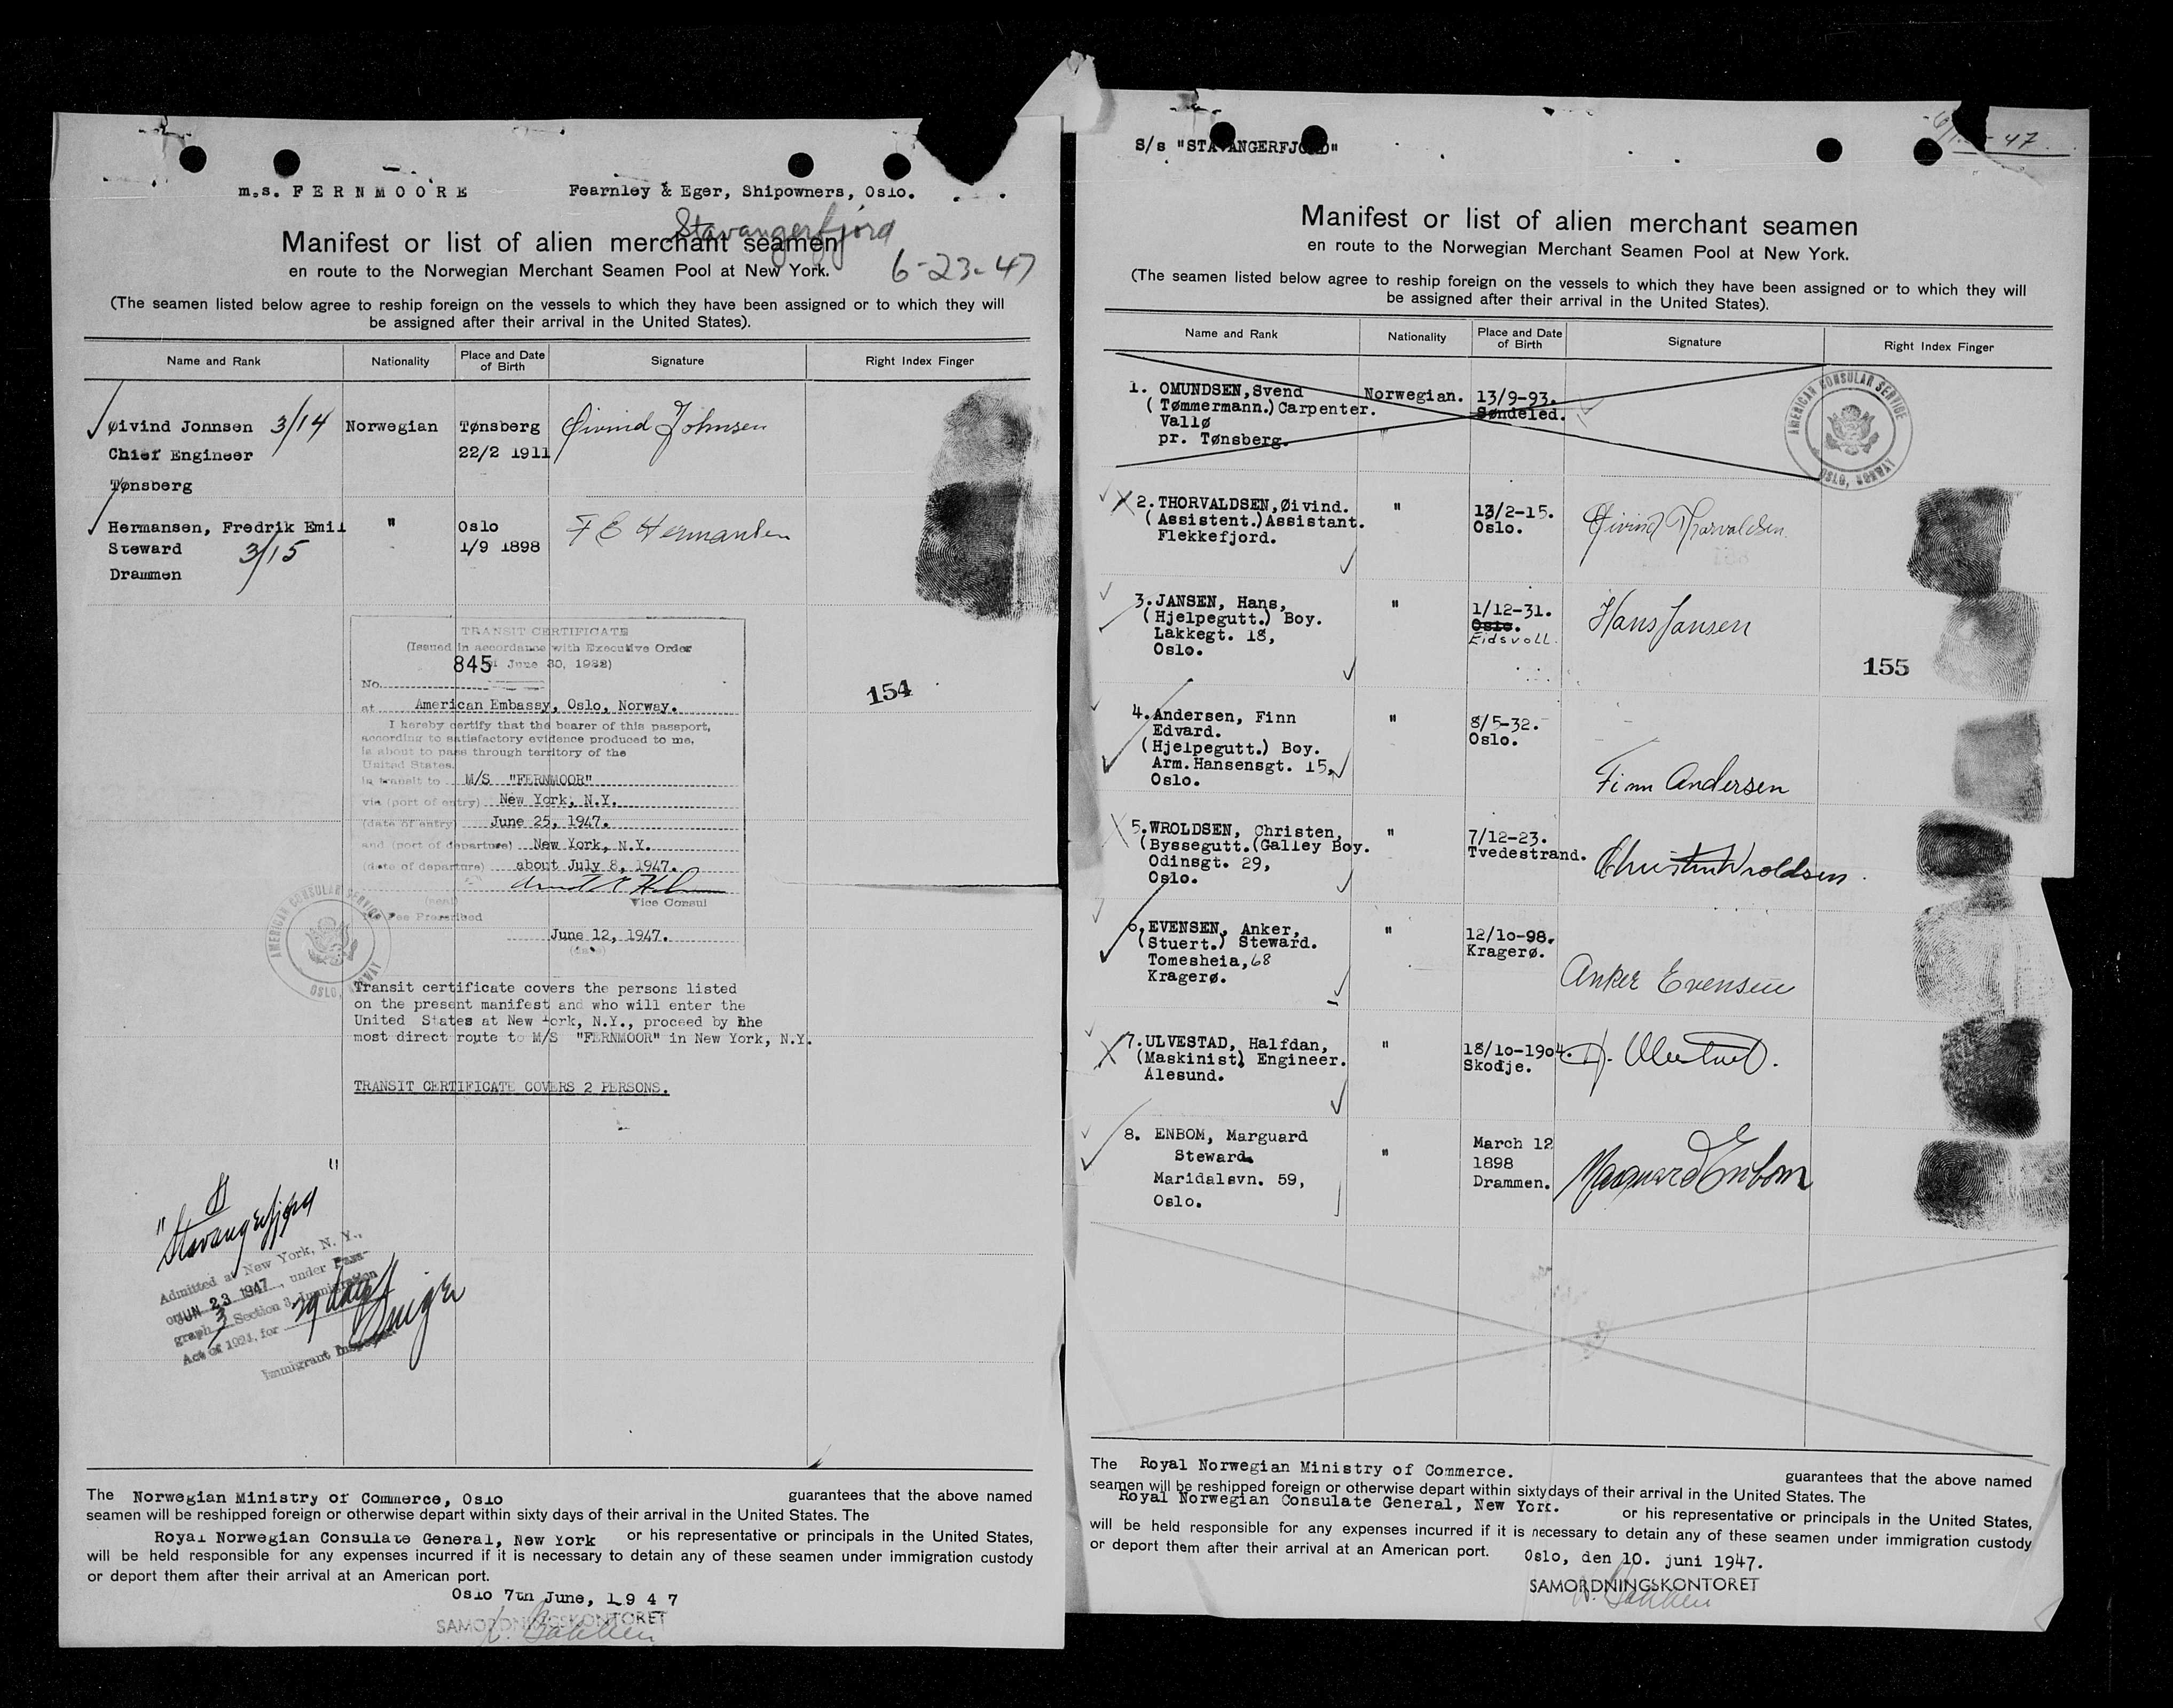 m.s. FERNMOORE Fearnley & Eger, Shipowners, Oslo.
Stavangerfjord
Manifest or list of alien merchant seamen
en route to the Norwegian Merchant Seamen Pool at New York.
6-23-47
(The seamen listed below agree to reship foreign on the vessels to which they have been assigned or to which they will
be assigned after their arrival in the United States).
Name and Rank Nationality Place and Date of Birth Signature Right Index Finger
Øivind Johnsen 3/14 Norwegian Tønsberg Øivind Johnsen
Chief Engineer 22/2 1911
Tønsberg
Hermansen, Fredrik Emil " Oslo F E Hermansen
Steward 3/15 1/9 1898
Drammen
TRANSIT CERTIFICATE
(Issued in accordance with Executive Order
of June 30, 1932)
No. 845
154
at American Embassy, Oslo, Norway.
I hereby certify that the bearer of this passport,
according to satisfactory evidence produced to me,
is about to pass through territory of the
United States.
in transit to M/S "FERNMOOR"
via (port of entry) New York, N.Y.
(date of entry) June 25, 1947.
and (port of departure) New York, N.Y.
(date of departure) about July 8, 1947.
(seal) Vice Consul
No Fee Prescribed
June 12, 1947.
(date)
AMERICAN CONSULAR SERVICE
OSLO, NORWAY
Transit certificate covers the persons listed
on the present manifest and who will enter the
United States at New York, N.Y., proceed by hhe
most direct route to M/S "FERNMOOR" in New York, N.Y.
TRANSIT CERTIFICATE COVERS 2 PERSONS.
"Stavangerfjord"
Admitted at New York, N. Y.,
on JUN 23 1947, under Para-
graph 3 Section 3, Immigration
Act of 1924, for 29 days
Immigrant Inspector
The Norwegian Ministry of Commerce, Oslo guarantees that the above named
seamen will be reshipped foreign or otherwise depart within sixty days of their arrival in the United States. The
Royal Norwegian Consulate General, New York or his representative or principals in the United States,
will be held responsible for any expenses incurred if it is necessary to detain any of these seamen under immigration custody
or deport them after their arrival at an American port.
Oslo 7th June, 1947
SAMORDNINGSKONTORET
S/s "STAVANGERFJORD"
47
Manifest or list of alien merchant seamen
en route to the Norwegian Merchant Seamen Pool at New York.
(The seamen listed below agree to reship foreign on the vessels to which they have been assigned or to which they will
be assigned after their arrival in the United States).
Name and Rank Nationality Place and Date of Birth Signature Right Index Finger
1. OMUNDSEN, Svend Norwegian. 13/9-93.
(Tømmermann.) Carpenter. Søndeled.
Vallø
pr. Tønsberg.
AMERICAN CONSULAR SERVICE
OSLO, NORWAY
2. THORVALDSEN, Øivind. " 13/2-15. Øivind Thorvaldsen
(Assistent.) Assistant. Oslo.
Flekkefjord.
3. JANSEN, Hans, " 1/12-31. Hans Jansen
(Hjelpegutt.) Boy. Oslo.
Lakkegt. 18, Eidsvoll.
Oslo.
155
4. Andersen, Finn " 8/5-32.
Edvard. Oslo.
(Hjelpegutt.) Boy.
Arm. Hansensgt. 15,
Oslo. Finn Andersen
5. WROLDSEN, Christen, " 7/12-23.
(Byssegutt. (Galley Boy. Tvedestrand.
Odinsgt. 29, Christen Wroldsen
Oslo.
6. EVENSEN, Anker, " 12/10-98.
(Stuert.) Steward. Kragerø.
Tomesheia, 68
Kragerø. Anker Evensen
7. ULVESTAD, Halfdan, " 18/10-1904. H. Ulvestad.
(Maskinist) Engineer. Skodje.
Ålesund.
8. ENBOM, Marguard " March 12
Steward. 1898
Maridalsvn. 59, Drammen. Marguard Enbom
Oslo.
The Royal Norwegian Ministry of Commerce. guarantees that the above named
seamen will be reshipped foreign or otherwise depart within sixty days of their arrival in the United States. The
Royal Norwegian Consulate General, New York. or his representative or principals in the United States,
will be held responsible for any expenses incurred if it is necessary to detain any of these seamen under immigration custody
or deport them after their arrival at an American port.
Oslo, den 10. juni 1947.
SAMORDNINGSKONTORET